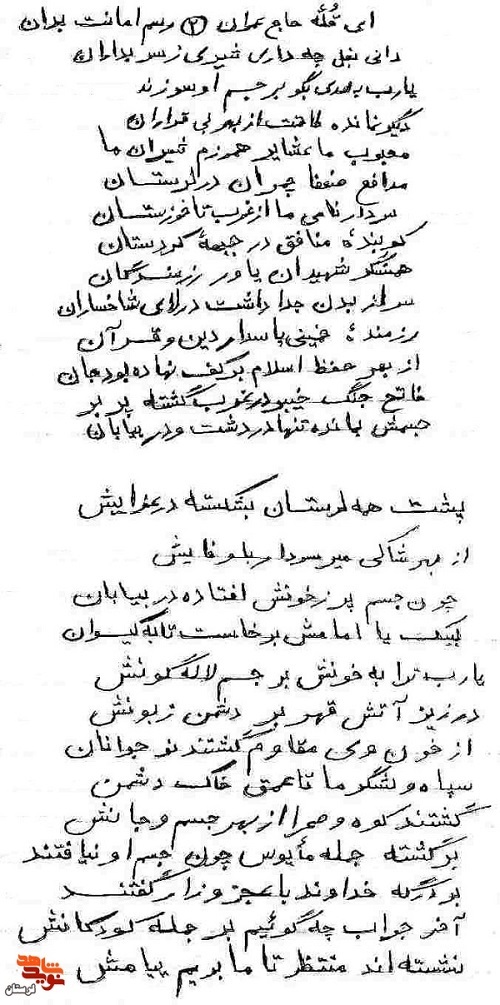 ای قُلّه حاج عمران (۲) رسم امانت بدان
دانی بغل چه داری شیری ز سربداران
یارب بهدی بگو بر جسم او سوزند
دیگر نمانده طاقت از بهر بی قراران
محبوب ما عشایر همرزم شیران ما
مدافع ضعفا چمران در لرستان
سردار نامی ما از غرب تا خوزستان
کوبندهٔ منافق در جبههٔ کردستان
همسنگر شهیدان یاور رزمندگان
سر از بدن جدا داشت در لای شاخساران
رزمندهٔ خمینی پاسدار دین و قرآن
از بهر حفظ اسلام بر کف نهاده بود جان
فاتح جنگ خیبر در غرب گشته پرپر
جسمش بمانده تنها در دشت و در بیابان
پشت همه لرستان بشکسته در عزایش
از بهر شاکی میر سردار با وفایش
چون جسم پر ز خونش افتاده در بیابان
لبیک یا امامش برخاست تا به کیوان
یارب ترا به خونش بر جسم لاله گونش
در ریز آتش قهر بر دشمن زبونش
از خون وی مقاوم گشتند نوجوانان
سپاه و لشگر ما تا عمق خاک دشمن
گشتند کوه و صحرا از بهر جسم و جانش
برگشته جمله مأیوس چون جسم او نیافتند
بر درگه خداوند با عجز و زار گفتند
آخر جواب چه گوئیم بر جمله کودکانش
نشسته اند منتظر تا ما بریم پیامش
نوید شاهد
لرستان